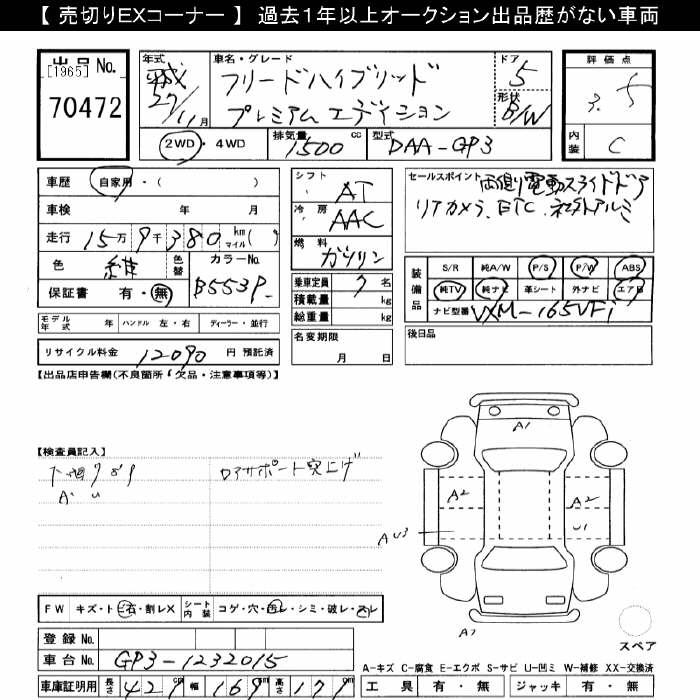 【 売切りEXコーナー 】 過去1年以上オークション出品歴がない車両
出品 No. [1965] 70472
年式 平成 27/11月
車名・グレード フリードハイブリッド プレミアムエディション
ドア 5
形状 B/W
評価点 3.5
内装 C
2WD・4WD 排気量 1500 cc 型式 DAA-GP3
車歴 自家用・( )
車検 年 月
走行 15万9千380 km マイル( )
色 紺 色替 カラーNo. B553P
保証書 有・無
モデル年式 年 ハンドル 左・右 ディーラー・並行
リサイクル料金 12090 円 預託済
シフト AT
冷房 AAC
燃料 ガソリン
乗車定員 7 名
積載量 kg
総重量 kg
名変期限 月 日
セールスポイント 両側電動スライドドア
リアカメラ、ETC、社外アルミ
装備品 S/R 純A/W P/S P/W ABS
純TV 純ナビ 革シート 外ナビ エアB
ナビ型番 VXM-165VFi
後日品
【出品店申告欄(不良箇所・欠品・注意事項等)】
【検査員記入】
下廻りサビ
A・U
ロアサポート突上げ
A1
A2
A2
AU3
U1
A2
スペア
FW キズ・トビ石・割レX シート内装 コゲ・穴・切レ・シミ・破レ・スレ
登録 No.
車台 No. GP3-1232015
車庫証明用 長さ 427 cm 幅 169 cm 高さ 177 cm
A-キズ C-腐食 E-エクボ S-サビ U-凹ミ W-補修 XX-交換済
工具 有・無 ジャッキ 有・無